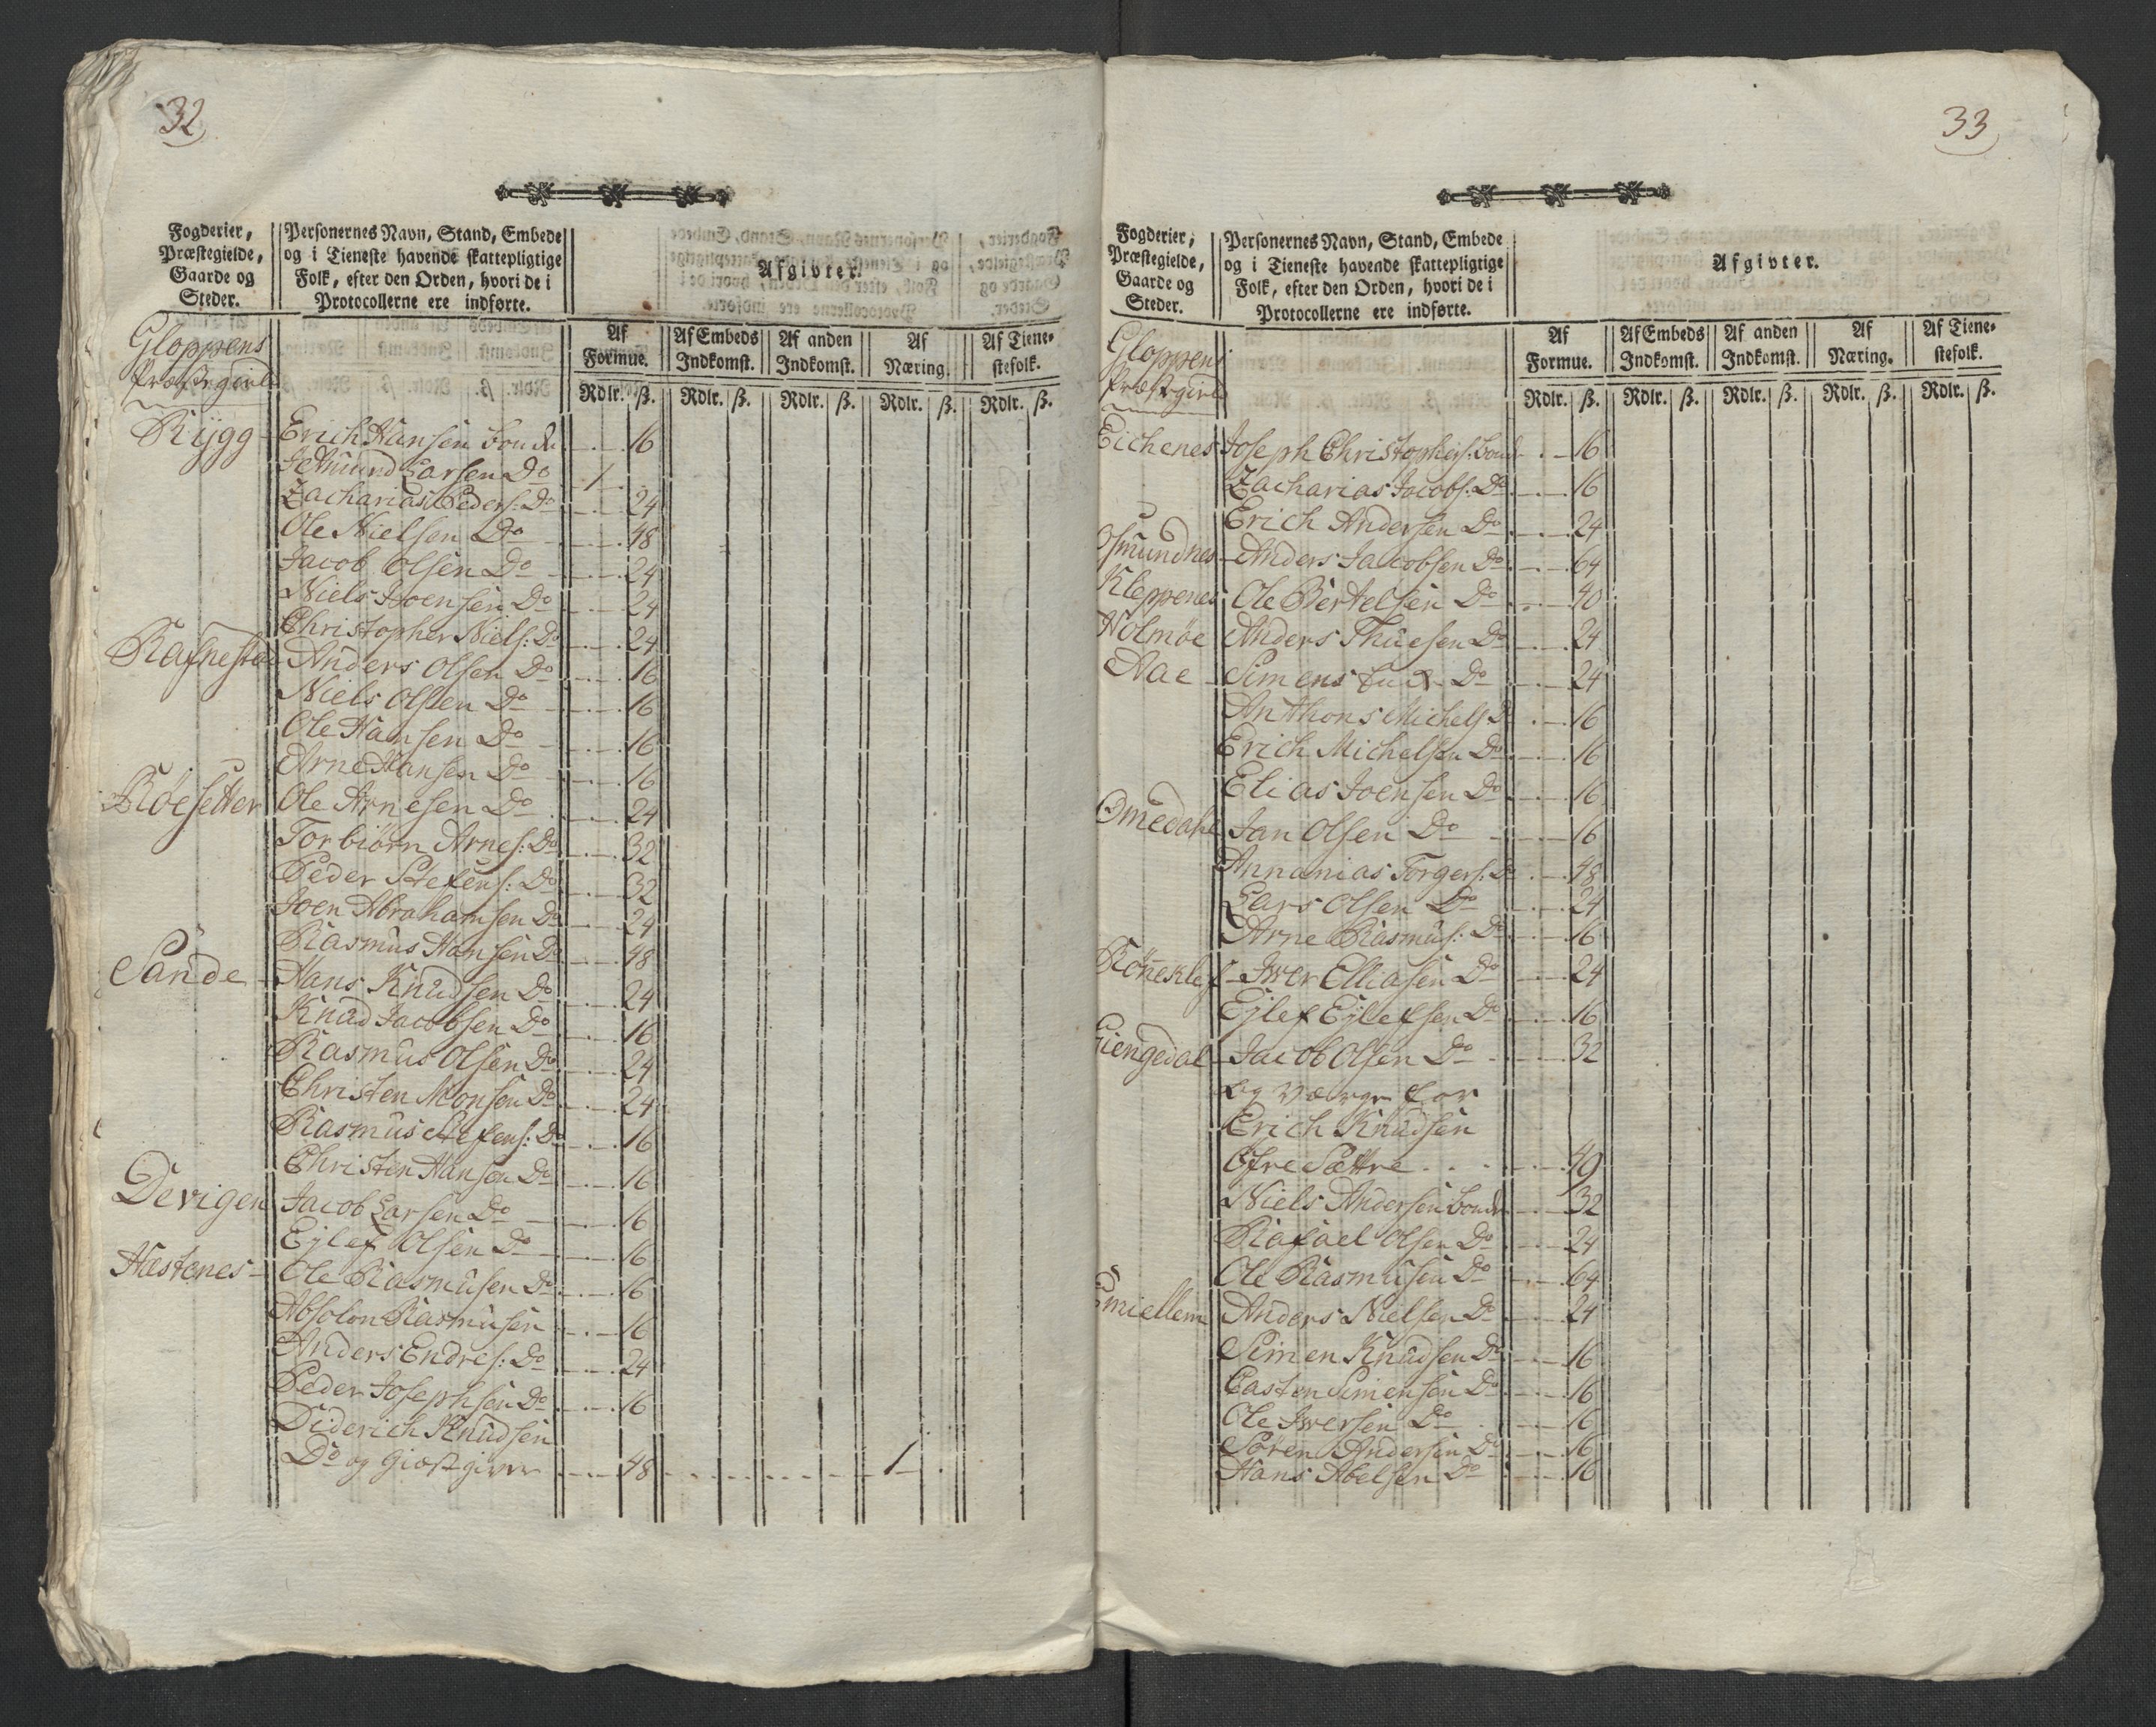 32
Fogderier,
Præstegielde,
Gaarde og
Steder.
Personernes Navn, Stand, Embede
og i Tieneste havende skattepligtige
Folk, efter den Orden, hvori de i
Protocollerne ere indførte.
Afgivter.
Af Formue.
Af Embeds Indkomst.
Af anden Indkomst.
Af Næring.
Af Tienestefolk.
Rdlr. ß. Rdlr. ß. Rdlr. ß. Rdlr. ß. Rdlr. ß.
Gloppens
Præstegield
Rygg - Erich Hansen bonde 16
Larsen Do 1
Zacharias Peders: Do 24
Ole Nielsen Do 48
Jacob Olsen Do 24
Niels Joensen Do 24
Christopher Niels: Do 24
Rafnestad Anders Olsen Do 16
Niels Olsen Do 16
Ole Hansen Do 16
Arne Hansen Do 16
Röesetter Ole Arnesen Do 24
Torbiörn Arnes: Do 32
Peder Stefens: Do 32
Joen Abrahamsen Do 24
Rasmus Hansen Do 48
Sande - Hans Knudsen Do 24
Knud Jacobsen Do 16
Rasmus Olsen Do 24
Christen Monsen Do 24
Rasmus Stefens: Do 16
Christen Hansen Do 16
Devigen Jacob Larsen Do 16
Ejlef Olsen Do 16
Hestenes - Ole Rasmusen Do 16
Absolon Rasmusen 16
Anders Endres: Do 24
Peder Josephsen Do 16
Diderich Knudsen
Do og Giæstgiver 48 1
33
Fogderier,
Præstegielde,
Gaarde og
Steder.
Personernes Navn, Stand, Embede
og i Tieneste havende skattepligtige
Folk, efter den Orden, hvori de i
Protocollerne ere indførte.
Afgivter.
Af Formue.
Af Embeds Indkomst.
Af anden Indkomst.
Af Næring.
Af Tienestefolk.
Rdlr. ß. Rdlr. ß. Rdlr. ß. Rdlr. ß. Rdlr. ß.
Gloppens
Præstegield
Eichenes Joseph Christophers: bonde 16
Zacharias Jacobs: Do 16
Erich Andersen Do 24
Osmundnes - Anders Jacobsen Do 64
Kleppenes Ole Bertelsen Do 40
Holmöe Anders Thuesen Do 24
Aae - Simens Do 24
Anthons Michels: Do 16
Erich Michelsen Do 16
Elias Joensen Do 16
Omedahl Jan Olsen Do 16
Annanias Torgers: Do 48
Lars Olsen Do 24
Arne Rasmus: Do 16
Röneklef - Iwer Elliasen Do 24
Ejlef Ejlefsen Do 16
Giengedal - Jacob Olsen Do 32
og værge for
Erich Knudsen
Öfre Sættre 40
Niels Andersen bonde 32
Rafael Olsen Do 24
Ole Rasmusen Do 64
Smiellem Anders Nielsen Do 24
Simen Knudsen Do 16
Casten Simensen Do 16
Ole Iwersen Do 16
Sören Andersen Do 16
Hans Abelsen Do 16